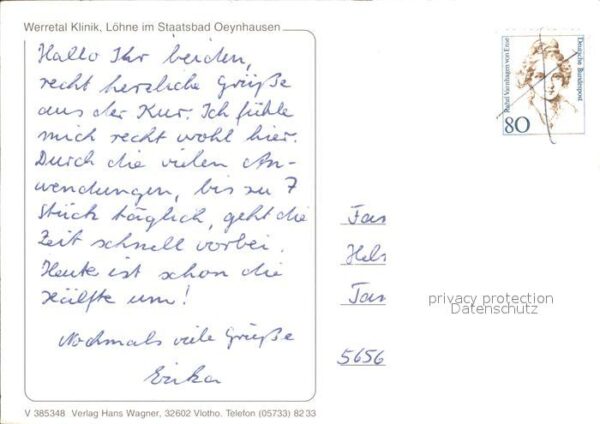 Werretal Klinik, Löhne im Staatsbad Oeynhausen
Hallo Ihr beiden,
recht herzliche Grüße
aus der Kur. Ich fühle
mich recht wohl hier.
Durch die vielen An-
wendungen, bis zu 7
Stück täglich, geht die
Zeit schnell vorbei.
Heute ist schon die
Hälfte um!
Nochmals viele Grüße
Erika
V 385348 Verlag Hans Wagner, 32602 Vlotho. Telefon (05733) 82 33
Rahel Varnhagen von Ense
Deutsche Bundespost
80
Fas
Hels
Tas
5656
privacy protection
Datenschutz